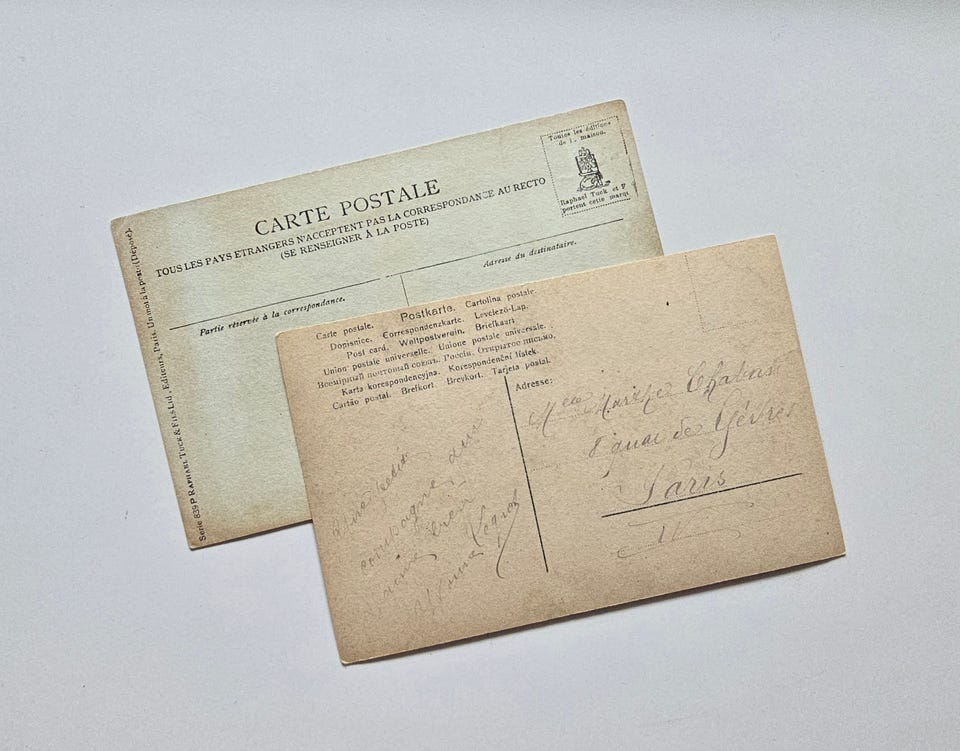 CARTE POSTALE
TOUS LES PAYS ETRANGERS N'ACCEPTENT PAS LA CORRESPONDANCE AU RECTO
(SE RENSEIGNER À LA POSTE)
Toutes les éditions
de l. maison.
Raphael Tuck et F
portent cette marqu
Partie réservée à la correspondance.
Adresse du destinataire.
Serie 839 P RAPHAEL TUCK & FILS Ltd, Editeurs, Paris. Un mot à la poste (Déposé).
Postkarte.
Carte postale. Cartolina postale.
Dopisnice. Correspondenzkarte. Levelező-Lap.
Post card. Weltpostverein. Briefkaart
Union postale universelle. Unione postale universale.
Всемірный почтовый союзъ. Россія. Открытое письмо.
Karta korespondencyjna. Korespondenční lístek.
Cartão postal. Brefkort. Brevkort. Tarjeta postal.
Adresse:
Melle Marthe
8 quai de Gèvres
Paris